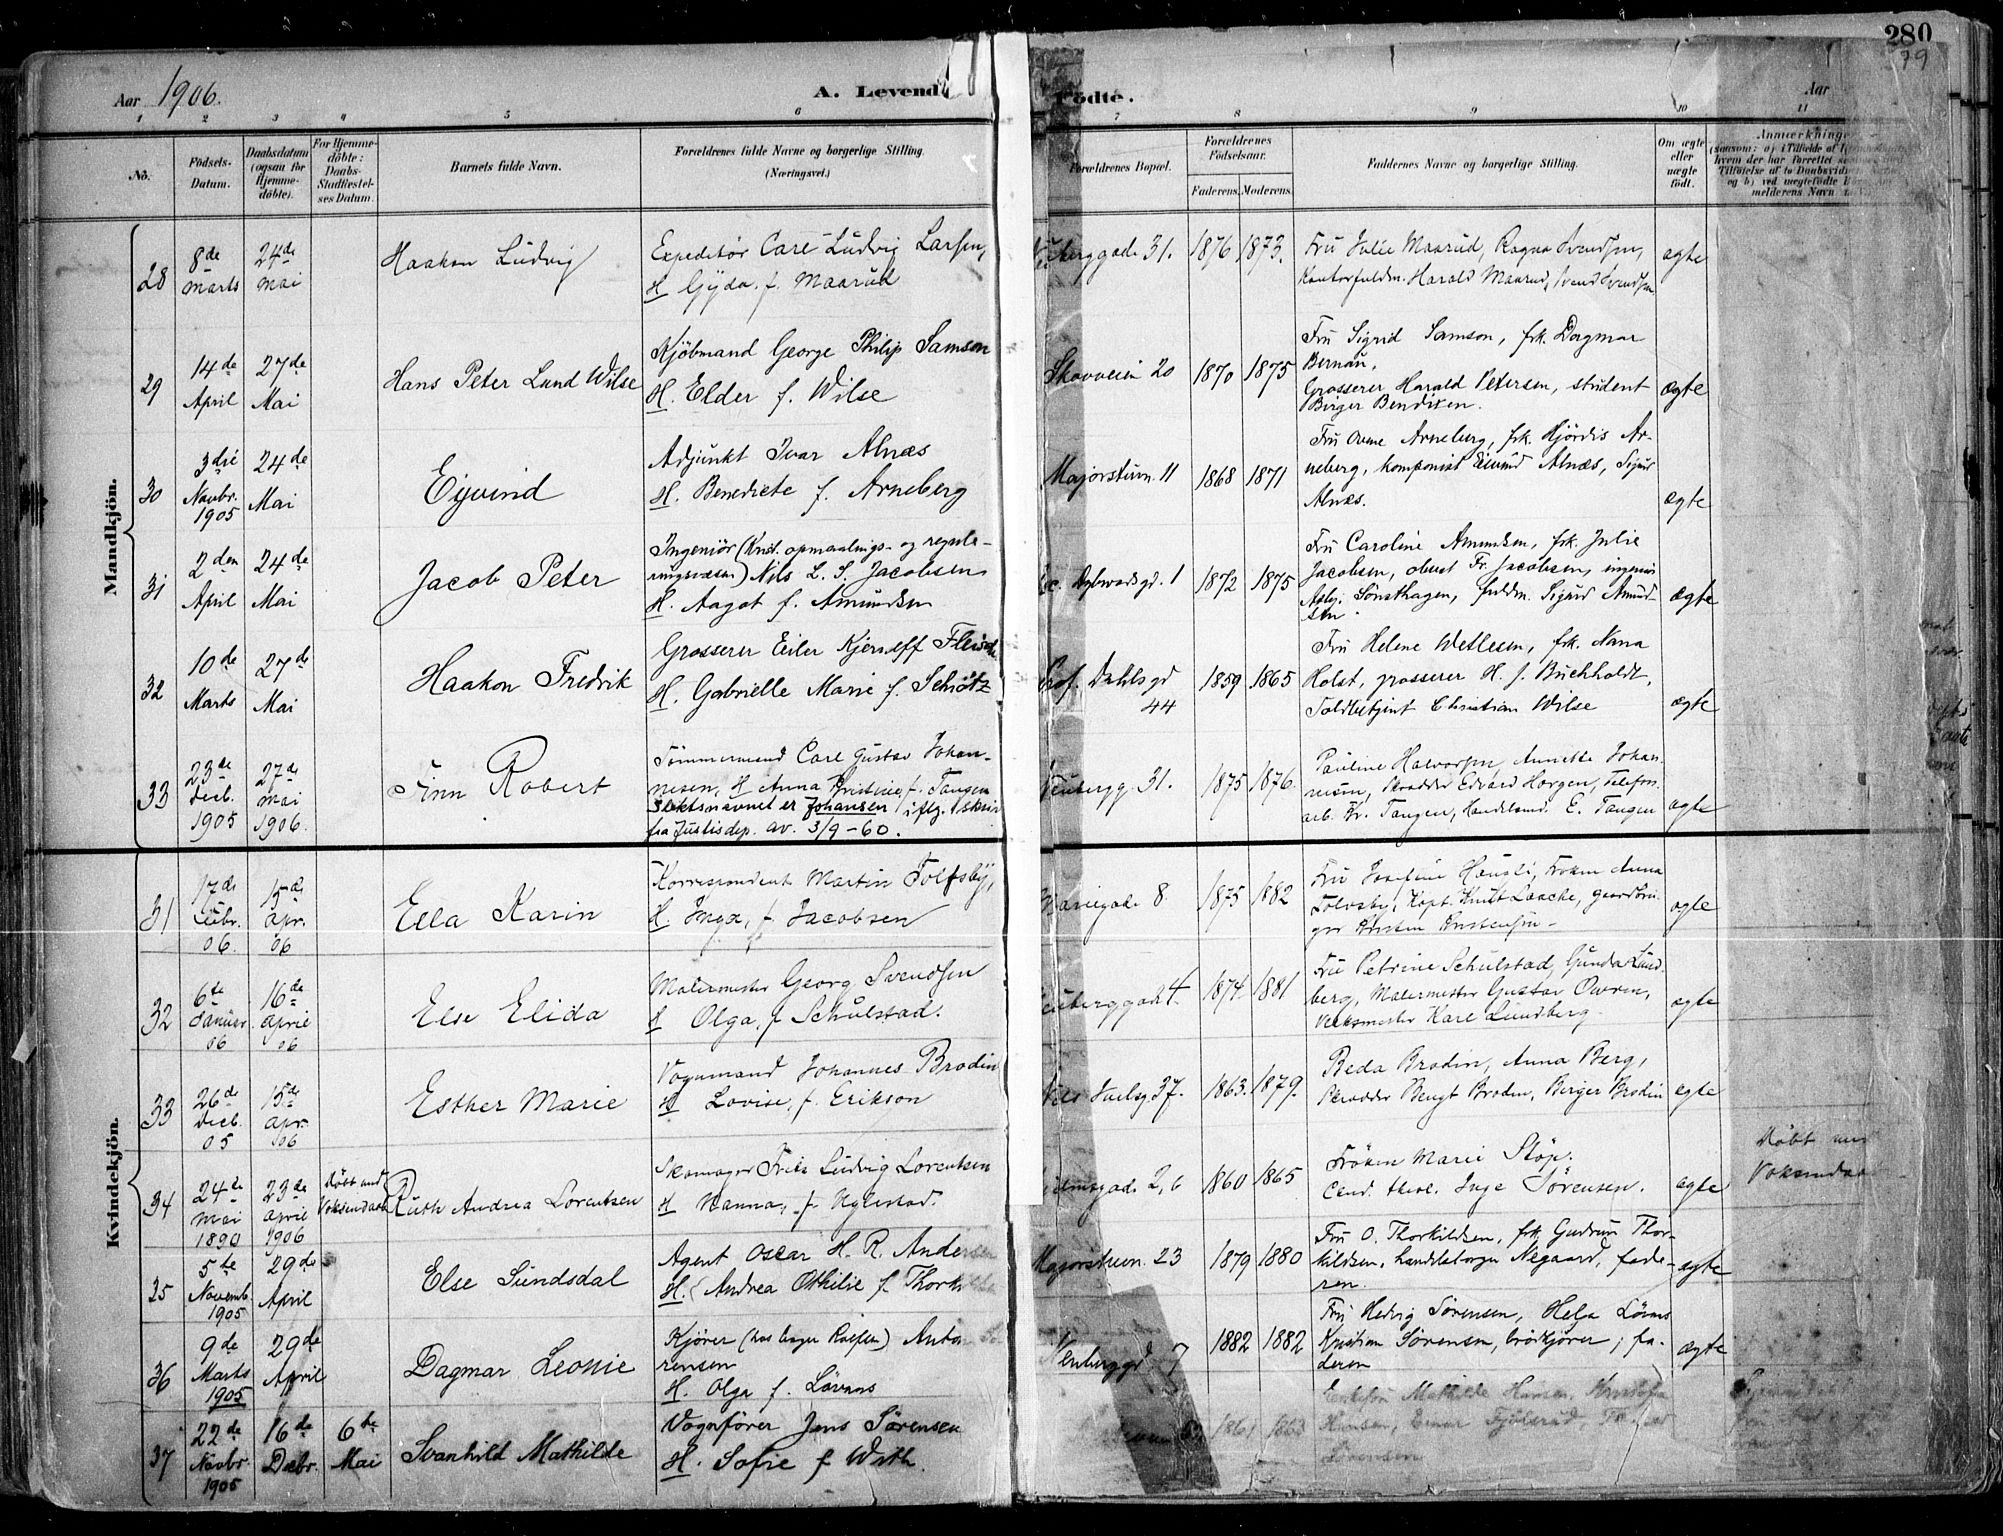 280
79
Aar 1906.
A. Levende Födte.
Aar
1 2 3 4 5 6 7 8 9 10 11
No.
Födsels-Datum.
Daabsdatum (ogsaa for Hjemmedöbte).
For Hjemmedöbte: Daabs-Stadfæstelses Datum.
Barnets fulde Navn.
Forældrenes fulde Navne og borgerlige Stilling. (Næringsvei.)
Forældrenes Bopæl.
Forældrenes Födselsaar.
Faderens. Moderens.
Faddernes Navne og borgerlige Stilling.
Om ægte eller uægte födt.
Mandkjön.
28
8de marts
24de mai
Haakon Ludvig
Expeditør Carl Ludvig Larsen,
H Gyda, f. Maarud
31.
1876 1873.
Fru Julie Maarud, Ragna Svendsen,
Kontorfuldm. Harald Maarud, Svend Svendsen
ægte
29
14de April
27de Mai
Hans Peter Lund Wilse
Kjøbmand George Philip Samson
H. Elder f. Wilse
Skovveien 20
1870 1875
Fru Sigrid Samson, frk. Dagmar
Bernau,
Grosserer Harald Petersen, student
Birger Bendixen.
ægte
30
3die Novbr. 1905
24de Mai
Eyvind
Adjunkt Ivar Alnæs
H. Benedicte f. Arneberg
Majorstuen 11
1868 1871
Fru Arneberg, frk. Hjördis Ar-
neberg, komponist Eivind Alnæs, Sigurd
Alnæs.
ægte
31
2den April
24de Mai
Jacob Peter
Ingeniør (Krist. opmaalings- og regule-
ringsvæsen) Nils L. S. Jacobsen
H. Aagot f. Amundsen
Dybwadsgd. 1
1872 1875
Fru Caroline Amundsen, frk. Julie
Jacobsen, oberst Fr. Jacobsen, ingeniør
Asbj. Sønsthagen, fuldm. Sigurd Amund-
sen.
ægte
32
10de Marts
27de Mai
Haakon Fredrik
Grosserer Eiler Kjerulff
H. Gabrielle Marie f. Schøtz
Prof. Dahls gd 44
1859 1865
Fru Helene Wetlesen, frk. Nana
Holst, grosserer H. J. Buchholdt,
Toldbetjent Christian Wilse
ægte
33
23de Decb. 1905
27de mai 1906.
Finn Robert
Tömmermand Carl Gustav Johan-
nesen, H Anna Kristine, f. Tangen
Slektsnavnet er Johansen iflg. skriv
fra Justisdep. av. 3/9-60.
31.
1875 1876.
Pauline Halvorsen, Annette Johan-
nesen, Skrædder Edvard Horgen, Telefon-
arb. Kr. Tangen, Handelsmd. E. Tangen
ægte
Kvindekjön.
31
17de Febr. 06.
15de apr. 06
Ella Karin
Korrespondent Martin Tolfsby,
H. Inga, f. Jacobsen
8
1875 1882
Fru Josefine Hausli, Frøken Anna
Tolvsby, Kapt. Knut Laache,
Kristen Kristensen -
ægte
32
6te Januar 06
16de april 06
Else Elida
Malermester Georg Svendsen
H Olga, f Schulstad.
4.
1874. 1881
Fru Petrine Schulstad, Gunda Lund-
berg, Malermester Gustav Owren,
Verksmester Karl Lundberg.
ægte
33
26de Decb. 05
15de apr. 06
Esther Marie
Vognmand Johannes Brodin
H Lovise, f. Erikson
37.
1863. 1879.
Beda Brodin, Anna Berg,
Skrædder Bengt Brodin, Berger Brodin
ægte
34
24de mai 1890
23de april 1906
Døbt ved Voksendaab
Ruth Andrea Lorentsen
Skomager Frits Ludvig Lorentsen
H Nanna, f Hylestad.
2, 6
1860 1865
Frøken Marie Støp.
Cand. theol. Inge Sørensen.
ægte
Døbt ved
Voksendaab
35
5te Novemb. 1905
29de April
Else Sundsdal
Agent Oscar H. R. Andersen
H. Andrea Othilie f. Thorkildsen
Majorstuen 23
1879 1880
Fru O. Thorkildsen, frk. Gudrun Thor-
kildsen, handelsborger Négaard, fade-
ren.
ægte
36
9de Marts 1905
29de April
Dagmar Leonie
Kjører Anton Sø-
rensen
H. Olga f. Løvaas
7
1882 1882
Fru Hedvig Sørensen, Helga Løvaas
Kristian Sørensen, brødkjører, fa-
deren
ægte
37
22de Novbr 1905
16de Decbr.
6te Mai
Svanhild Mathilde
Vognfører Jens Sørensen
H. Sofie f With
1861 1863
Mathilde Hansen,
Hansen, Einar Fjølsrud,
Sørensen